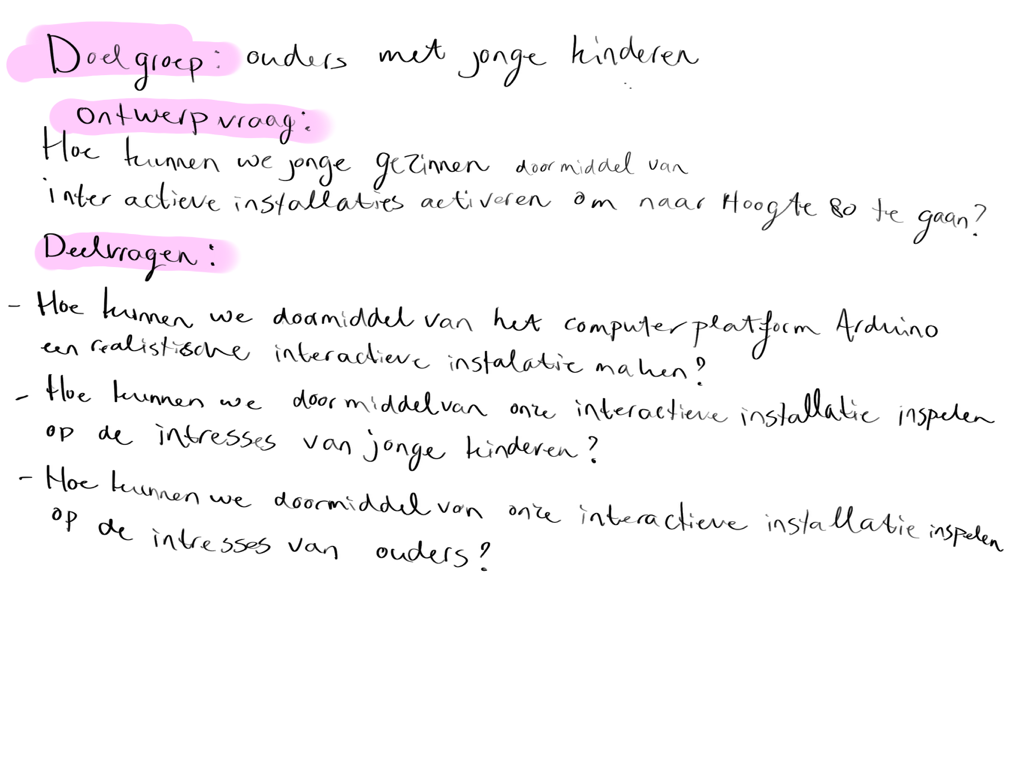 Doelgroep: ouders met jonge kinderen
ontwerpvraag:
Hoe kunnen we jonge gezinnen doormiddel van
interactieve installaties activeren om naar Hoogte 80 te gaan?
Deelvragen:
- Hoe kunnen we doormiddel van het computerplatform Arduino
een realistische interactieve instalatie maken?
- Hoe kunnen we doormiddel van onze interactieve installatie inspelen
op de intresses van jonge kinderen?
- Hoe kunnen we doormiddel van onze interactieve installatie inspelen
op de intresses van ouders?